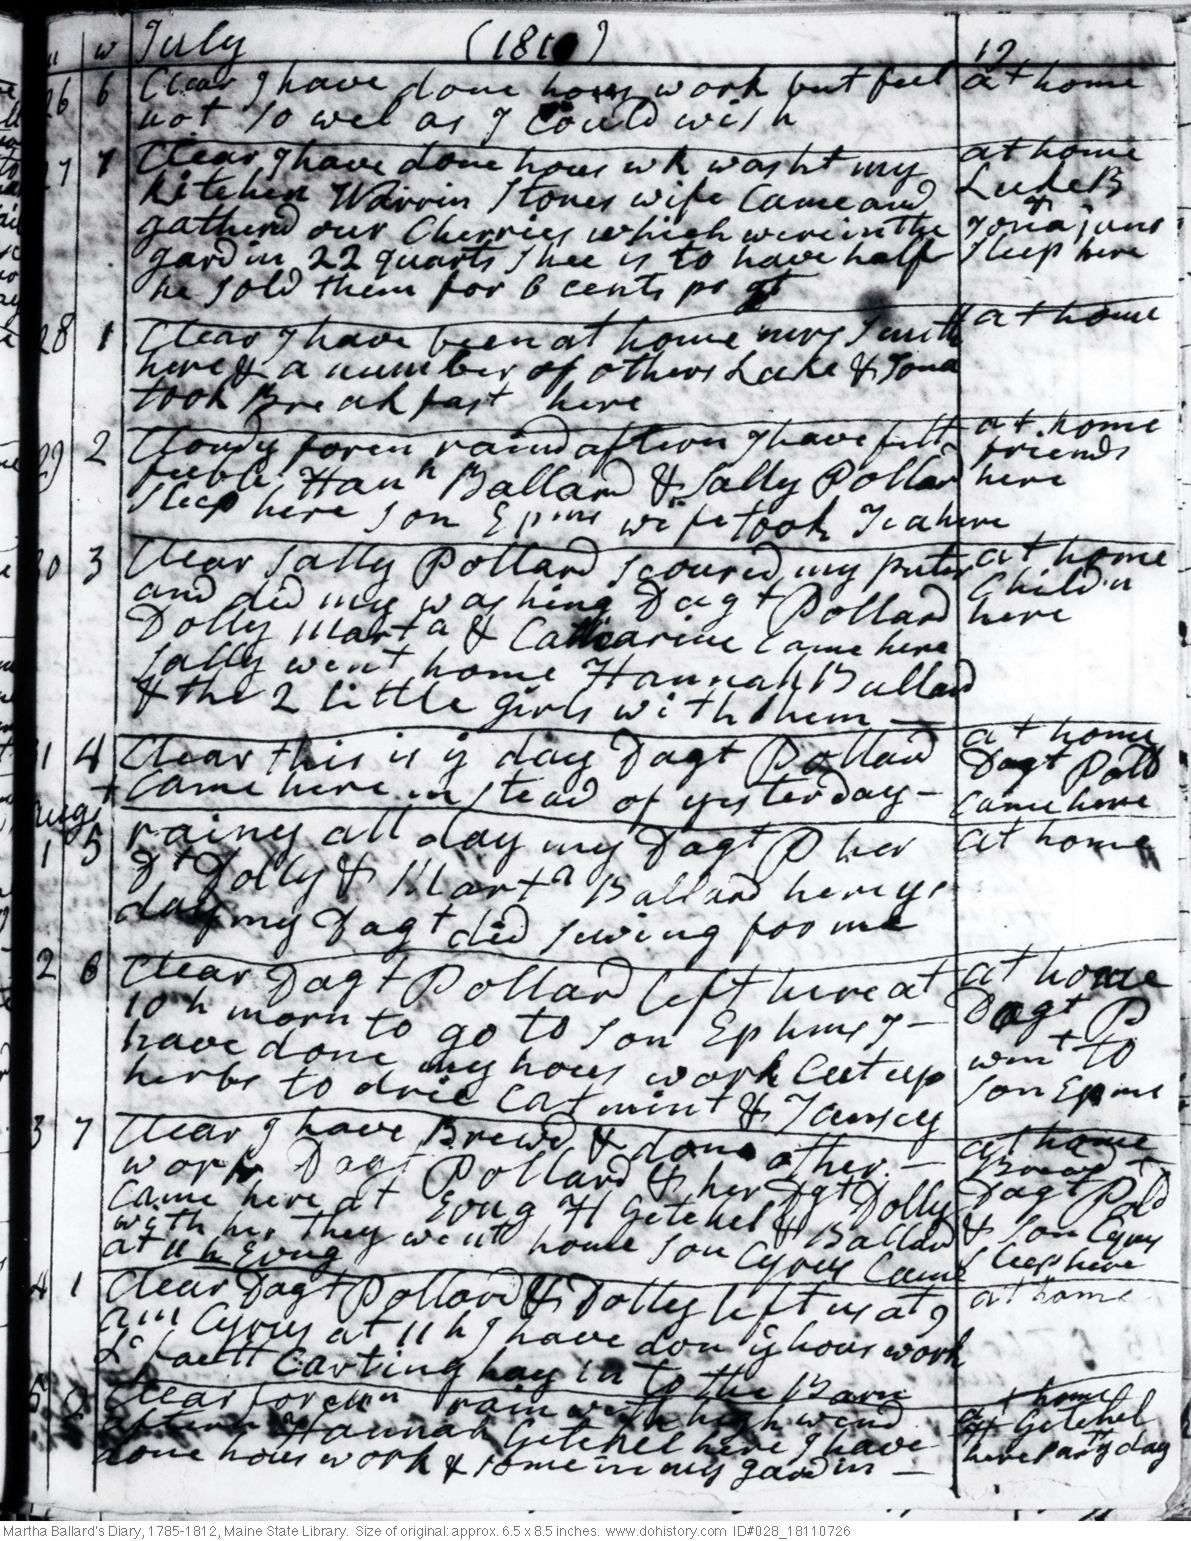 July (181 )
26 6 Clear I have done hous work but feel at home
not so wel as I Could wish
27 7 Clear I have done hous wk washt my at home
kitchen Warrin Stones wife Came and Luke B
gatherd our Cherries which were in the & Jona
gardin 22 quarts Shee is to have half Sleep here
he sold them for 6 cents pr qt
28 1 Clear I have been at home mrs Smith at home
here & a number of others Luke & Jona
took Breakfast here
29 2 Cloudy foren raind aftern I have felt at home
feeble Hanh Ballard & Sally Pollard friends
Sleep here Son Epms wife took Tea here here
30 3 Clear Sally Pollard Scoured my puter at home
and did my washing Dagt Pollard Childn
Dolly Marta & Catharine Came here here
Sally went home Hannah Ballard
& the 2 little girls with them —
31 4 Clear this is ye day Dagt Pollard at home
Came here in stead of yesterday — Dagt Polld
Came here
Augt
1 5 rainey all day my Dagt P her at home
Dt Dolly & Marta Ballard here ys
day my Dagt did Sewing for me
2 6 Clear Dagt Pollard left here at at home
10 h morn to go to Son Ephms I — Dagt P
have done my hous work Cut up went to
herbs to drie Catmint & Tansey Son Epms
3 7 Clear I have Brewd & done other — at home
work Dagt Pollard & her Dgt Dolly Brewd —
Came here at Evng H Getchel & Ballard Dagt Polld
with her they went home Son Cyrus Came & Son Cyrus
at 11 h Evng Sleep here
4 1 Clear Dagt Pollard & Dolly left us at 9 at home
am Cyrus at 11 h I have don ye hous work
Lafaett Carting hay in to the Barn
5 2 Clear forenn rain with high wind at home
aftern Hannah Getchel here I have H Getchel
done hous work & some in my gardin — here part ye day
Martha Ballard's Diary, 1785-1812, Maine State Library. Size of original: approx. 6.5 x 8.5 inches. www.dohistory.com ID#028_18110726